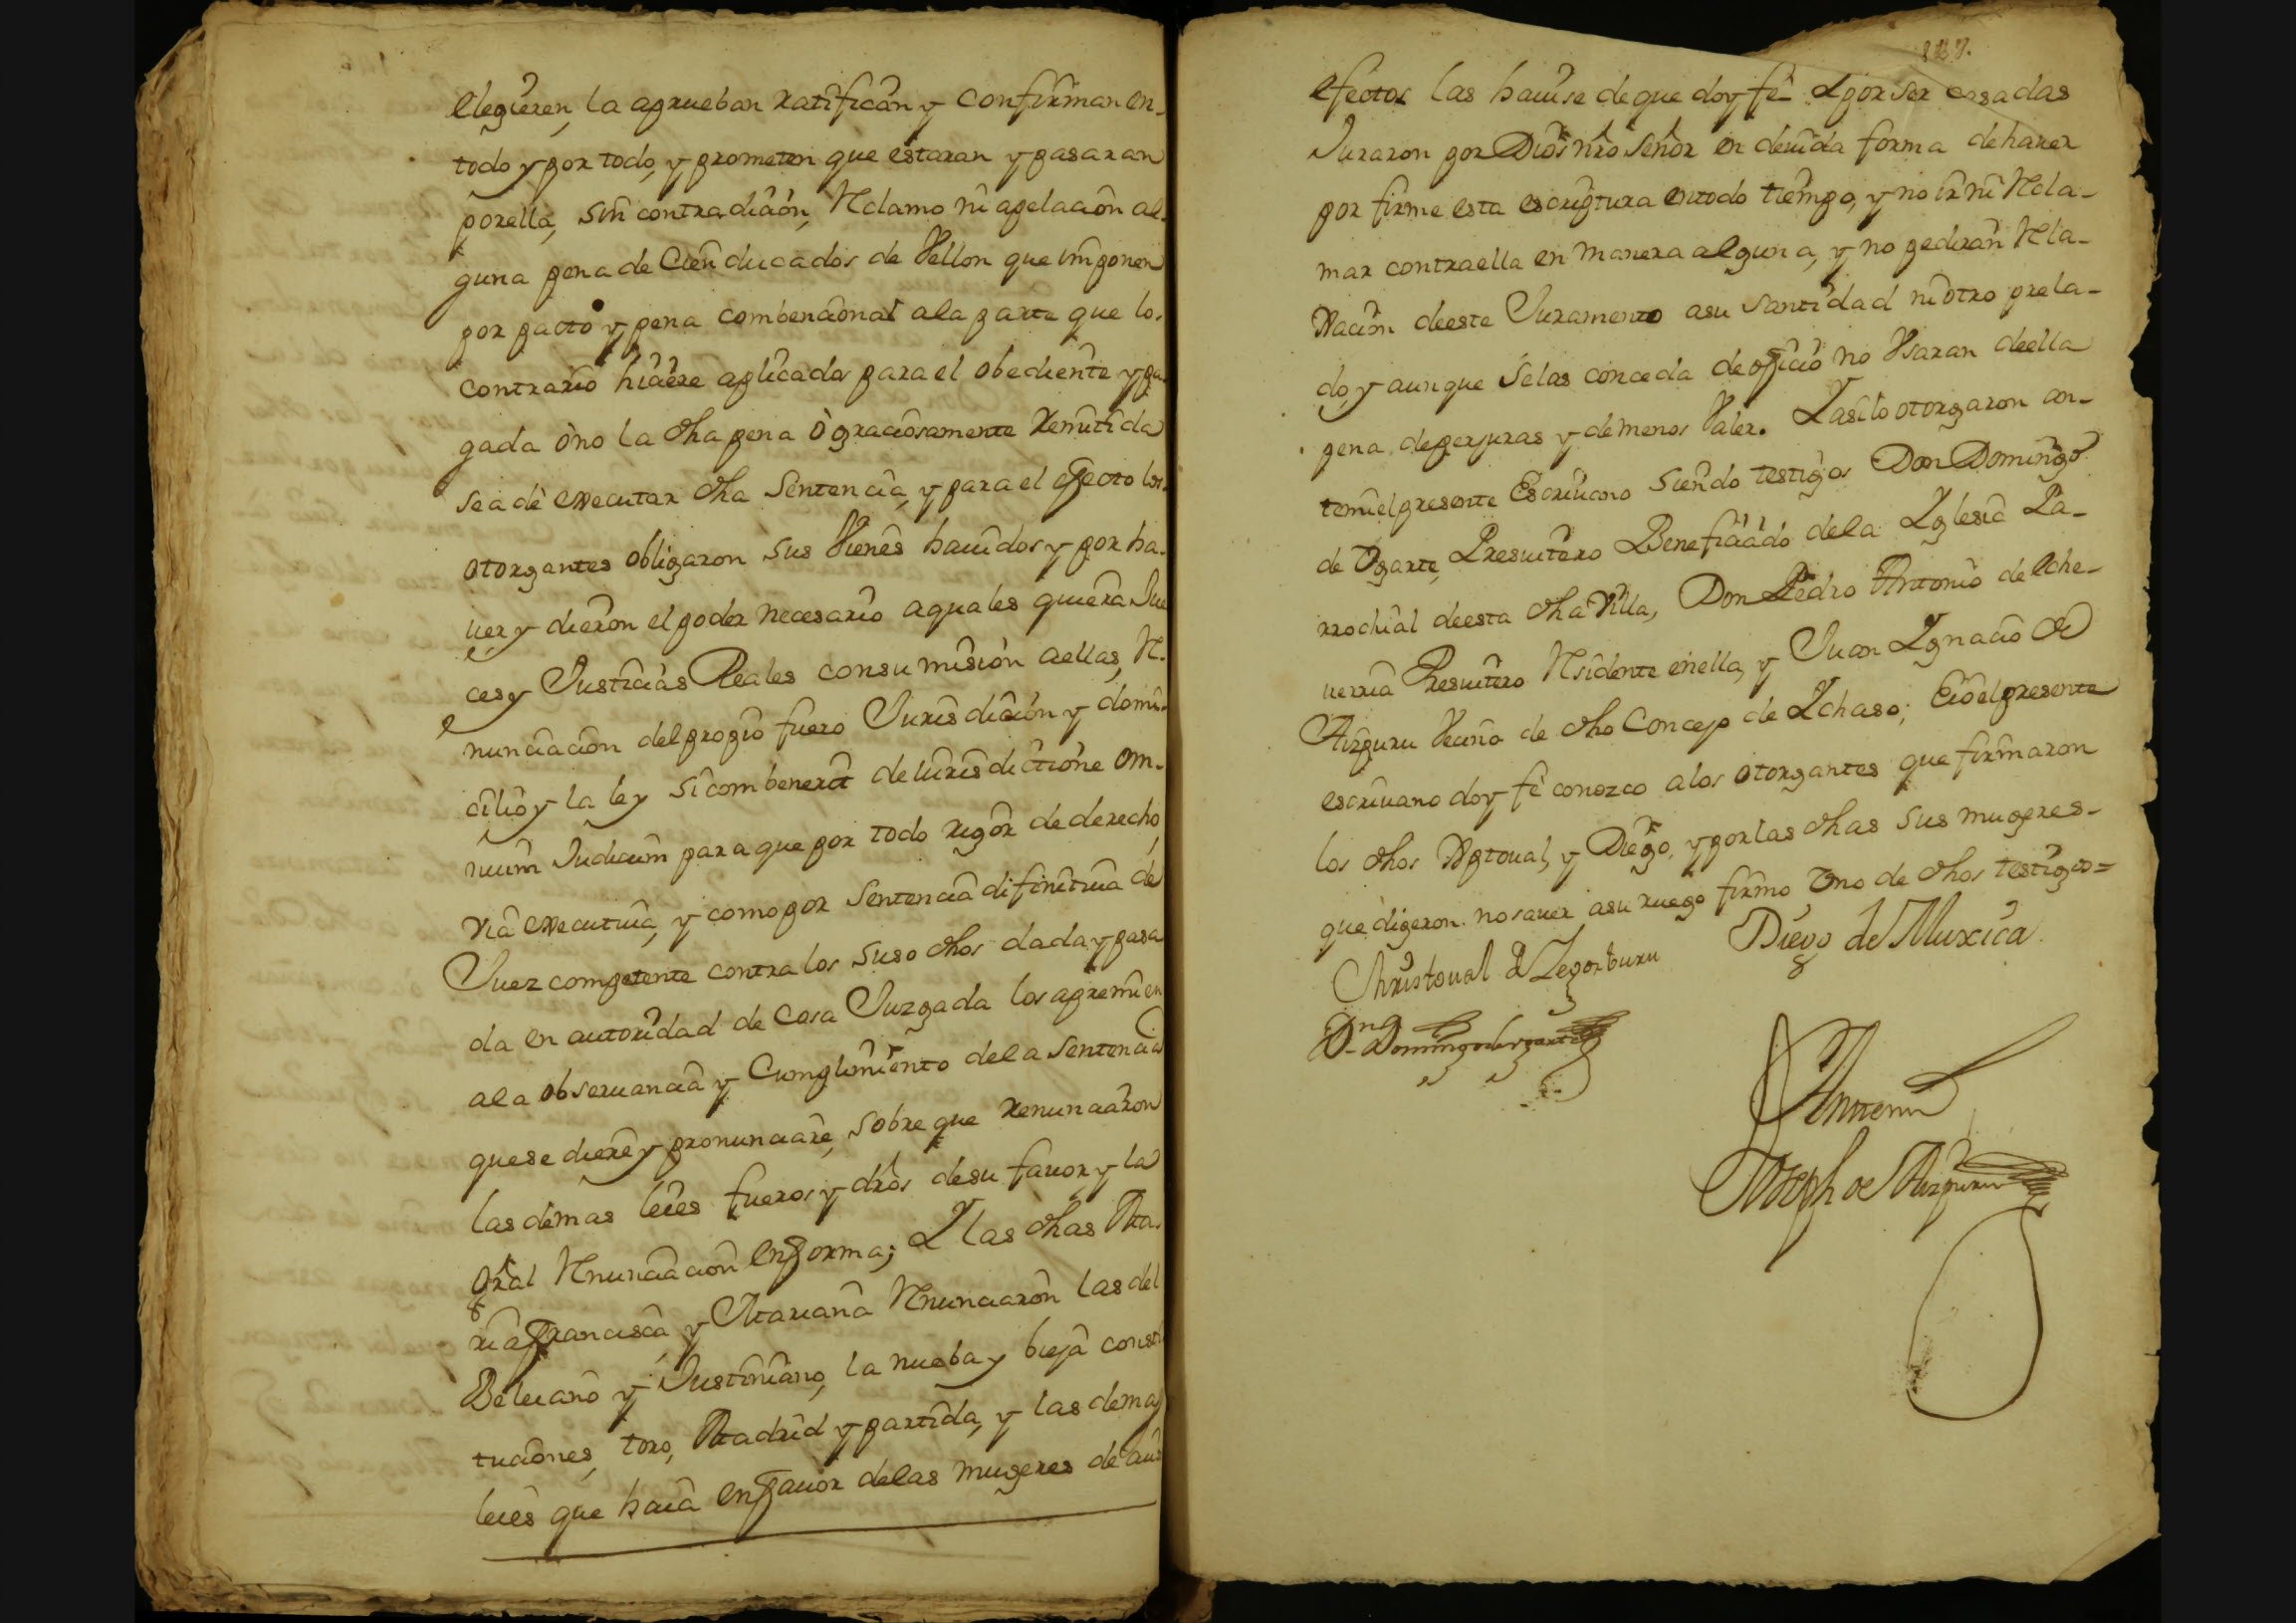 elegieren, la aprueban ratifican y confirman en-
todo y por todo, y prometen que estaran y pasaran
por ella, sin contradicion, Reclamo ni apelacion al-
guna pena de Cien ducados de Vellon que imponen
por pacto y pena combencional a la parte que lo
contrario hiciere aplicados para el obediente y pa-
gada ò no la dha pena ò graciosamente Remitida
sea de executar dha Sentencia, y para el efecto los
otorgantes obligaron sus Vienes hauidos y por ha-
uer y dieron el poder necesario a quales quiera Jue
ces y Justicias Reales con su misión a ellas, Re-
nunciacion del propio fuero Jurisdicion y domi-
cilio y la ley si combenerit de Iurisdictione om-
nium Judicum para que por todo rigor de derecho,
via executiua, y como por sentencia difinitiua de
Juez competente contra los suso dhos dada y pasa
da en autoridad de Cosa Juzgada los apremien
a la obseruancia y Cumplimiento de la sentencia
que se diere y pronunciare, sobre que Renunciaron
las demas leies fueros y dros de su fauor y la
gral Renunciacion en forma; Y las dhas Ma-
ria Francisca, y Mariana Renunciaron las del
Beleiano y Justiniano, la nueba y bieja consti
tuciones, toro, Madrid y partida, y las demas
leies que hacia en fauor de las mugeres de cuios
127.
efectos las hauise de que doy fê Y por ser casadas
Juraron por Dios nro Señor en deuida forma de hauer
por firme esta escriptura en todo tiempo, y no ir ni Recla-
mar contra ella en manera alguna, y no pediran Rela-
xacion de este Juramento a su Santidad ni otro prela-
do, y aunque se las conceda de oficio no Vsaran de ella
pena de perjuras y de menos Valer. Y asi lo otorgaron an-
te mi el presente Escriuano siendo testigos Don Domingo
de Vgarte, Presuitero Beneficiado de la Yglesia Pa-
rrochial de esta dha Villa, Don Pedro Antonio de Eche-
uerria Presuitero Residente en ella, y Juan Ygnacio de
Aizpuru Vecino de dho Concejo de Ychaso; E io el presente
escriuano doy fê conozco a los otorgantes que firmaron
los dhos Xptoual, y Diego, y por las dhas sus mugeres-
que digeron no sauer a su ruego firmo Vno de dhos testigos=
Christoual de Zegorburu Diego de Muxica
Dn Domingo de Vgarte
Ante mi
Joseph de Aizpuru